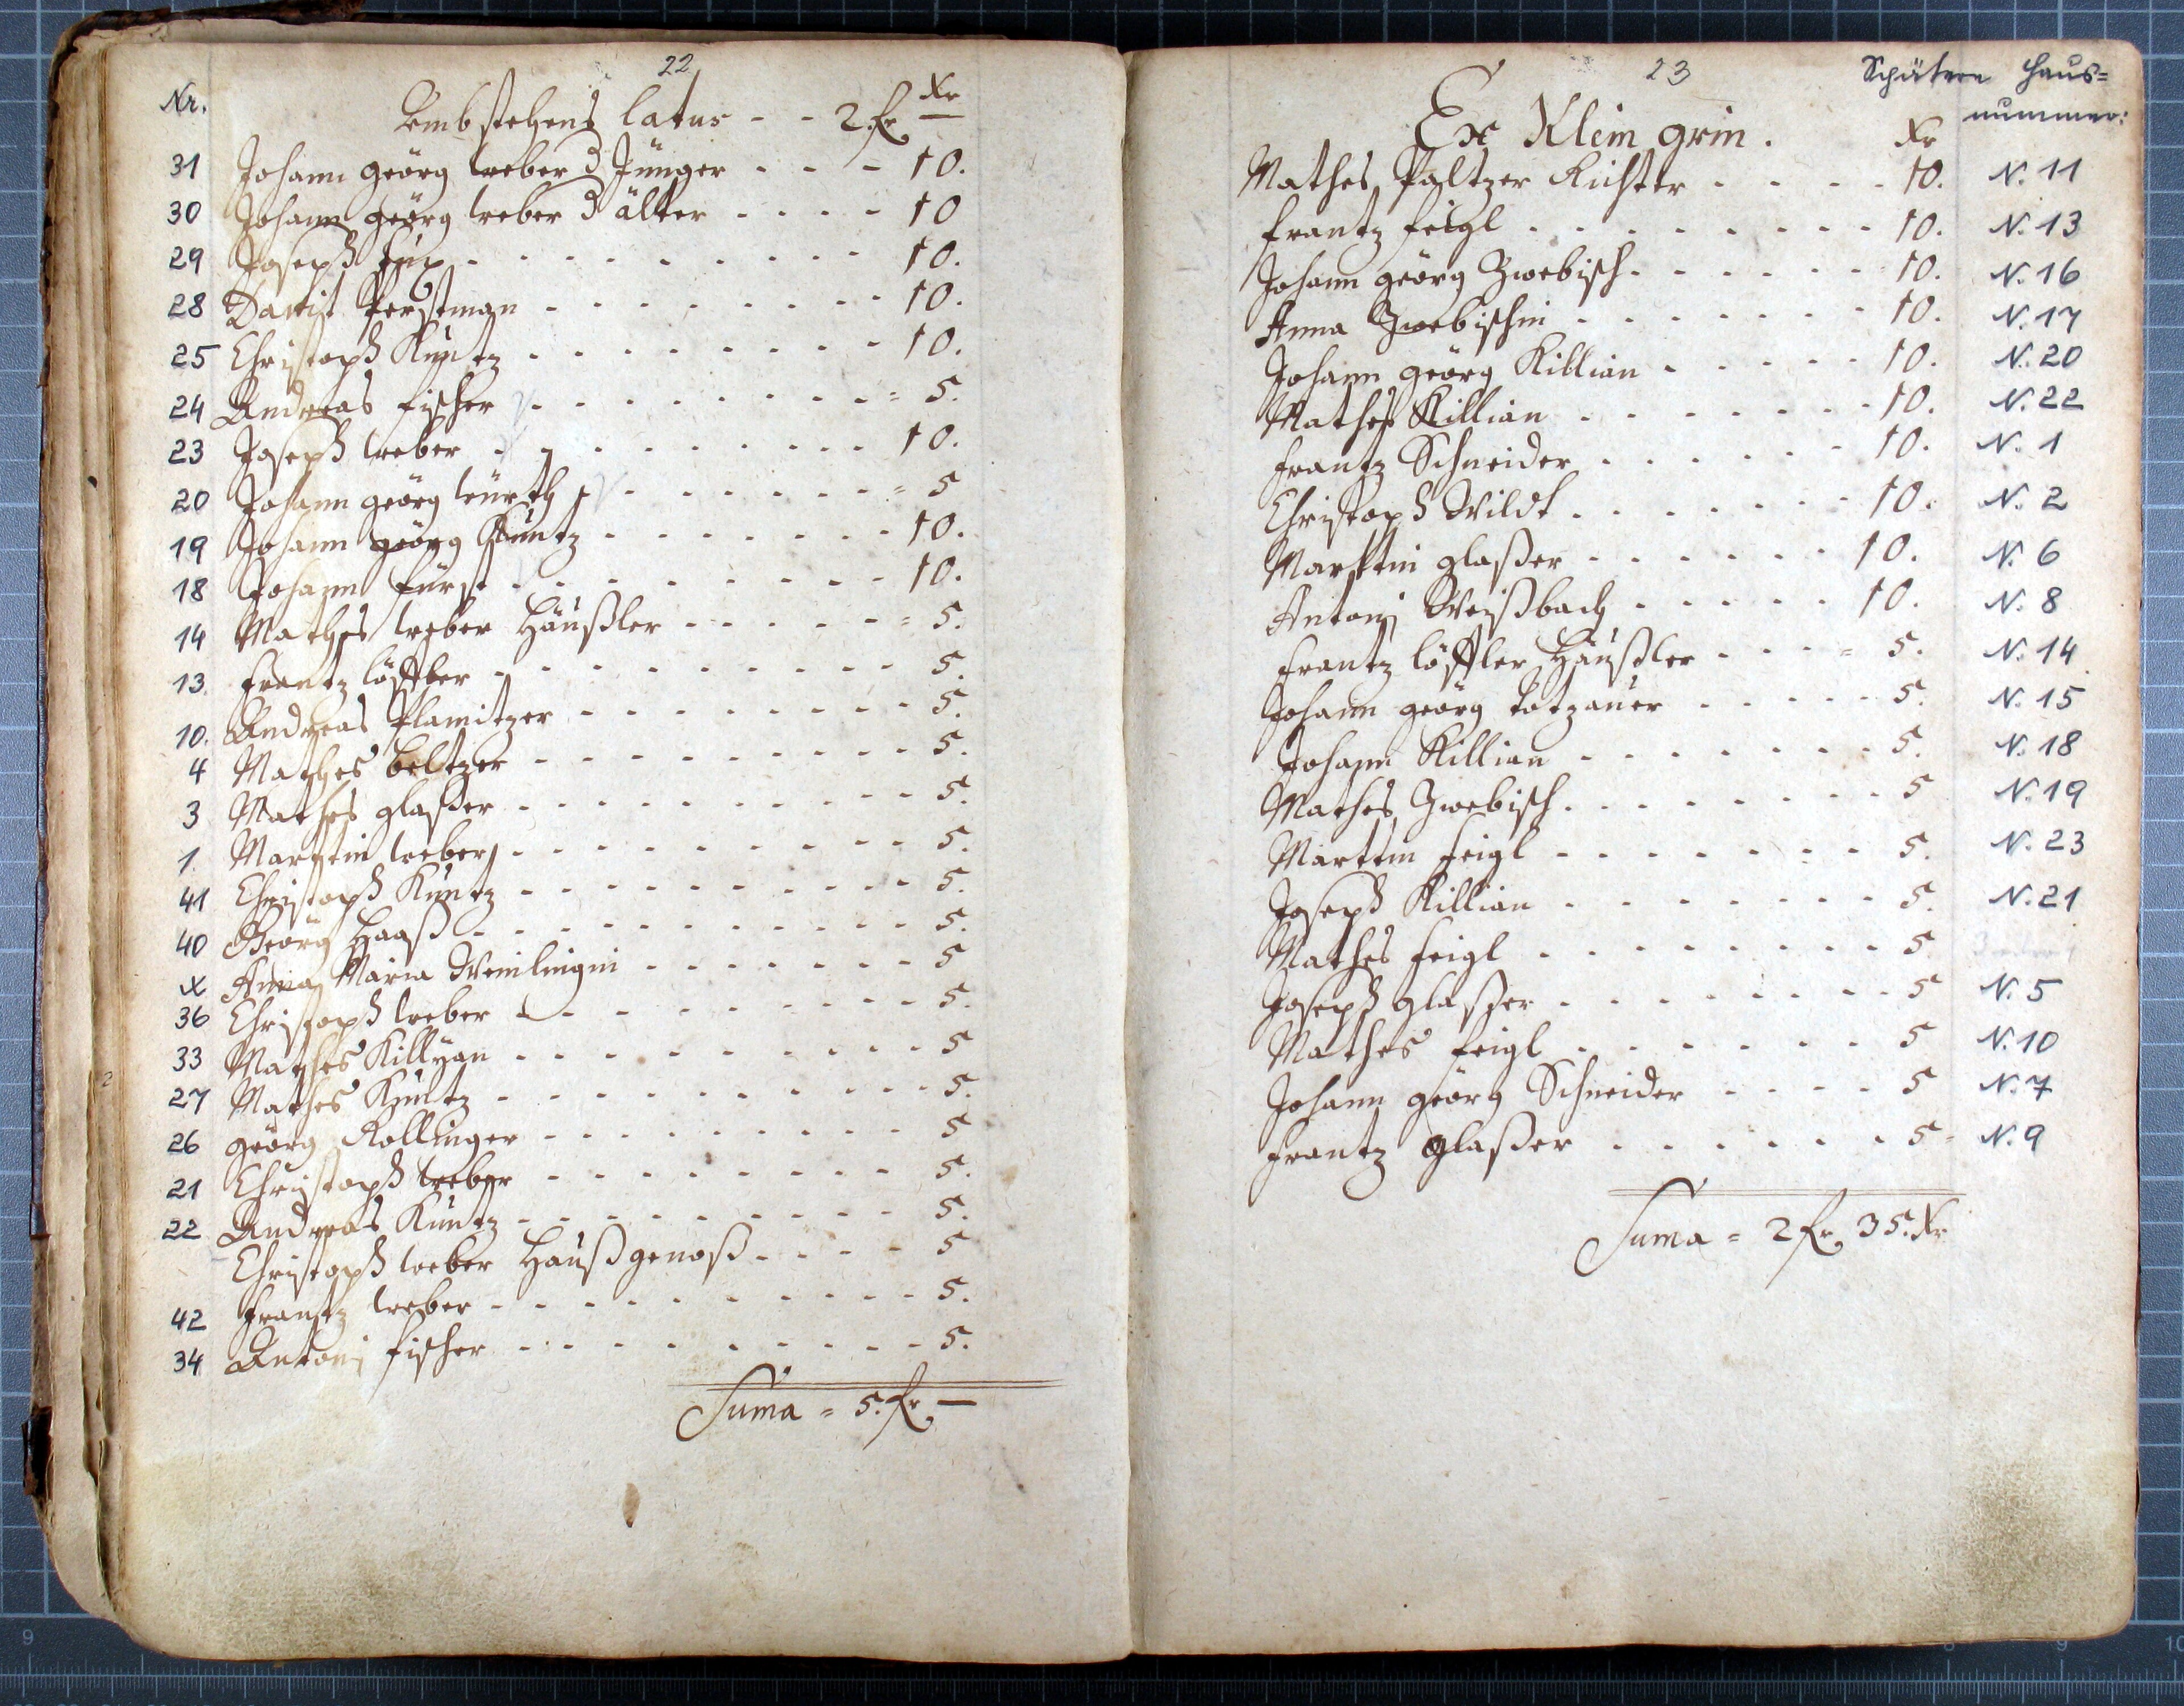 22
Nr. Umbstehens latus - - 2. fr. Xr —
31 Johann geörg weber d Jünger - - - 10.
30 Johann geörg weber d älter - - - - 10
29 Joseph - - - - - - - - - 10.
28 - - - - - - - - 10.
25 Christoph Kuntz - - - - - - - - - 10.
24 Andreas fischer - - - - - - - - = 5.
23 Joseph weber - - - - - - - - - 10.
20 Johann geörg würth - - - - - - = 5
19 Johann geörg Kuntz - - - - - - - 10.
18 Johann fürst - - - - - - - - - 10.
14 Mathes weber Häußler - - - - - = 5.
13. Frantz löffler - - - - - - - - - - 5.
10. Andreas Plamitzer - - - - - - - - 5.
4 Mathes beltzer - - - - - - - - - - 5.
3 Mathes glaßer - - - - - - - - - - 5.
1. Marttin weber - - - - - - - - - 5.
41 Christoph Kuntz - - - - - - - - - - 5.
40 Geörg Haaß - - - - - - - - - - - 5.
x Anna Maria - - - - - - - 5
36 Christoph weber - - - - - - - - - 5.
33 Mathes Killÿan - - - - - - - - - - 5
27 Mathes Kuntz - - - - - - - - - - 5.
26 geörg Rollinger - - - - - - - - - 5
21 Christoph weber - - - - - - - - 5.
22 Andreas Kuntz - - - - - - - - - 5.
Christoph weber Haußgenoß - - - - 5
42 Frantz weber - - - - - - - - - - 5.
34 Antoni fischer - - - - - - - - - - 5.
Suma = 5. fr. —
23
Spätere Haus=
nummer:
Ex Klein grin. Xr
Mathes Paltzer Richter - - - - 10. N. 11
Frantz feigl - - - - - - - - - 10. N. 13
Johann geörg Zwebisch - - - - - - 10. N. 16
Anna Zwebischin - - - - - - - 10. N. 17
Johann geörg Killian - - - - - 10. N. 20
Mathes Killian - - - - - - - 10. N. 22
Frantz Schneider - - - - - - 10. N. 1
Christoph Wildt - - - - - - - 10. N. 2
Marttin glaßer - - - - - - 10. N. 6
Antoni Weißbach - - - - - 10. N. 8
Frantz löffler Häußler - - - = 5. N. 14
Johann geörg totzauer - - - - 5. N. 15
Johann Killian - - - - - - - 5. N. 18
Mathes Zwebisch - - - - - - - - 5 N. 19
Marttin feigl - - - - - - - 5. N. 23
Joseph Killian - - - - - - - 5. N. 21
Mathes feigl - - - - - - - - 5
Joseph glaßer - - - - - - - - 5 N. 5
Mathes feigl - - - - - - 5 N. 10
Johann geörg Schneider - - - - 5 N. 7
Frantz glaßer - - - - - - 5 N. 9
Suma = 2 fr. 35. Xr